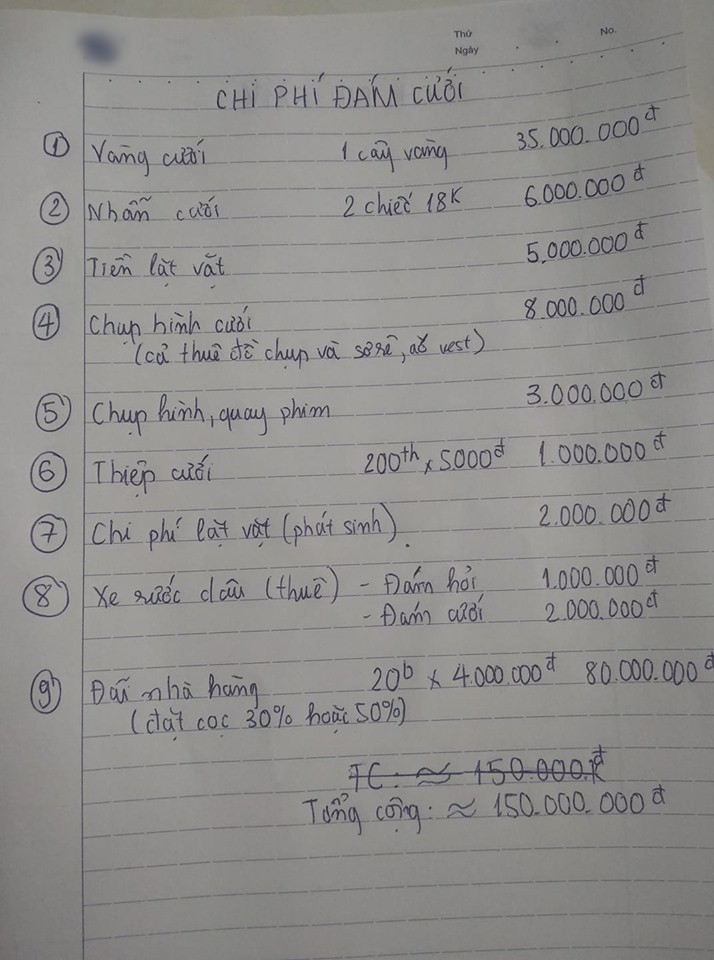 Thứ
No.
Ngày
CHI PHÍ ĐÁM CƯỚI
① Vàng cưới 1 cây vàng 35.000.000đ
② Nhẫn cưới 2 chiếc 18K 6.000.000đ
③ Tiền lặt vặt 5.000.000đ
④ Chụp hình cưới 8.000.000đ
(cả thuê đồ chụp và sơrê, áo vest)
⑤ Chụp hình, quay phim 3.000.000đ
⑥ Thiệp cưới 200th x 5000đ 1.000.000đ
⑦ Chi phí lặt vặt (phát sinh). 2.000.000đ
⑧ Xe rước dâu (thuê) - Đám hỏi 1.000.000đ
- Đám cưới 2.000.000đ
⑨ Đãi nhà hàng 20b x 4.000.000đ 80.000.000đ
(đặt cọc 30% hoặc 50%)
TC: ≈ 150.000.kđ
Tổng cộng: ≈ 150.000.000đ